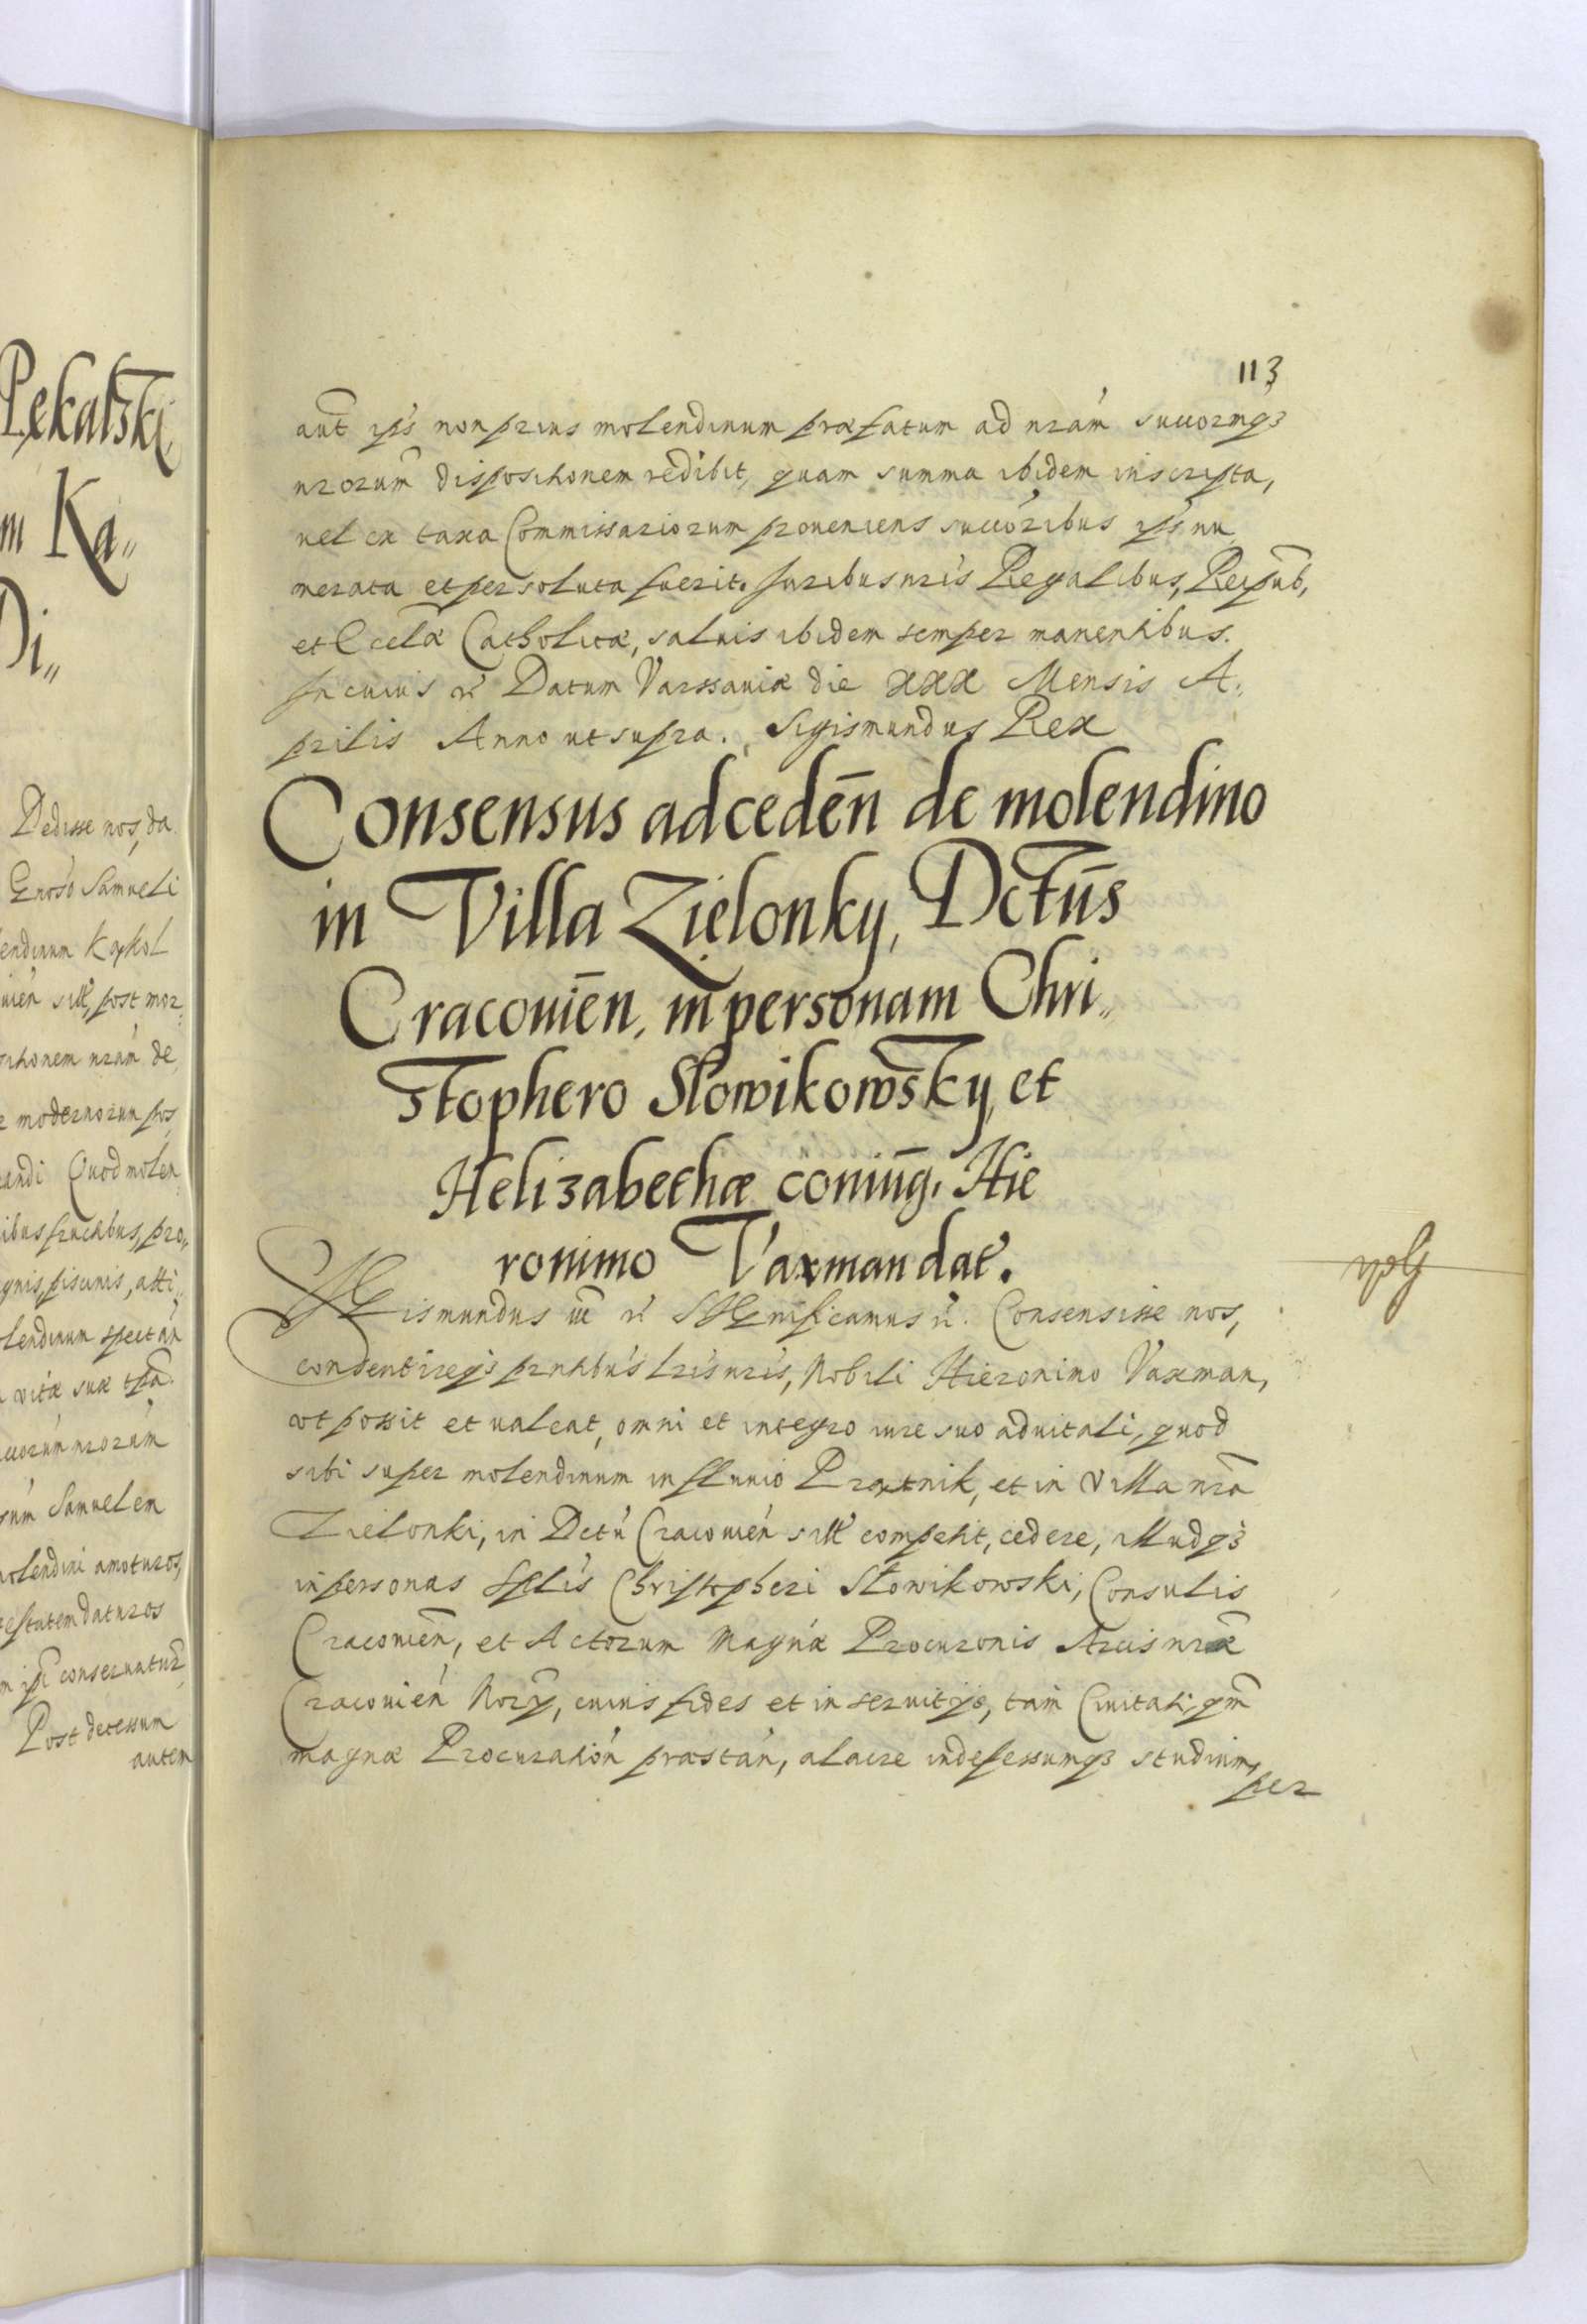 Pękalski
m Ka„
Di„
Dedisse nos, da
Gnoso Samueli
lendinum Kąkol
post mor
ozitionem nram de
modernorum pos
andi Quod molen
ibus fructibus, pro„
gnis, piscinis, atti„
lendinum spectan
vitæ suæ tpa.
uorum nrorum
sum Samuelem
molendini amoturos,
testatem daturos
m ipi conseruatur,
Post decessum
autem
113
aut ipis non prius molendinum præfatum ad nram succorumq3
nrorum dispositionem redibit, quam summa ibidem inscripta,
vel ex taxa Commissariorum proueniens succoribus ipis nu
merata et persoluta fuerit. Juribus nris Regalibus, Reipub,
et Eccliæ Catholicæ, saluis ibidem semper manentibus.
In cuius rei Datum Varssauiæ die xxx Mensis A„
prilis Anno ut supra. Sigismundus Rex
Consensus ad ceden de molendino
in Villa Zielonky, Dctus
Cracouien, in personam Chri„
stophero Słowikowsky, et
Helizabethæ coniug, Hie
ronimo Vaxman dat.
Sigismundus iii rc Significamus rc. Consensisse nos,
consentireq3 pntibus lris nris, Nobili Hieronimo Vaxman,
vt possit et ualeat, omni et integro iure suo aduitali, quod
sibi super molendinum in fluuio Prątnik, et in villa nra
Zielonki, in Dctu Cracouien sitt competit, cedere, illudq3
in personas Splis Christopheri Słowikowski, Consulis
Cracouien, et Actorum Magnæ Procuronis Arcis nræ
Cracouien Norÿ, cuius fides et in seruitÿs, tam Ciuitati, qm
magnæ Procuration præstan, alacre indefessumq3 studium,
per